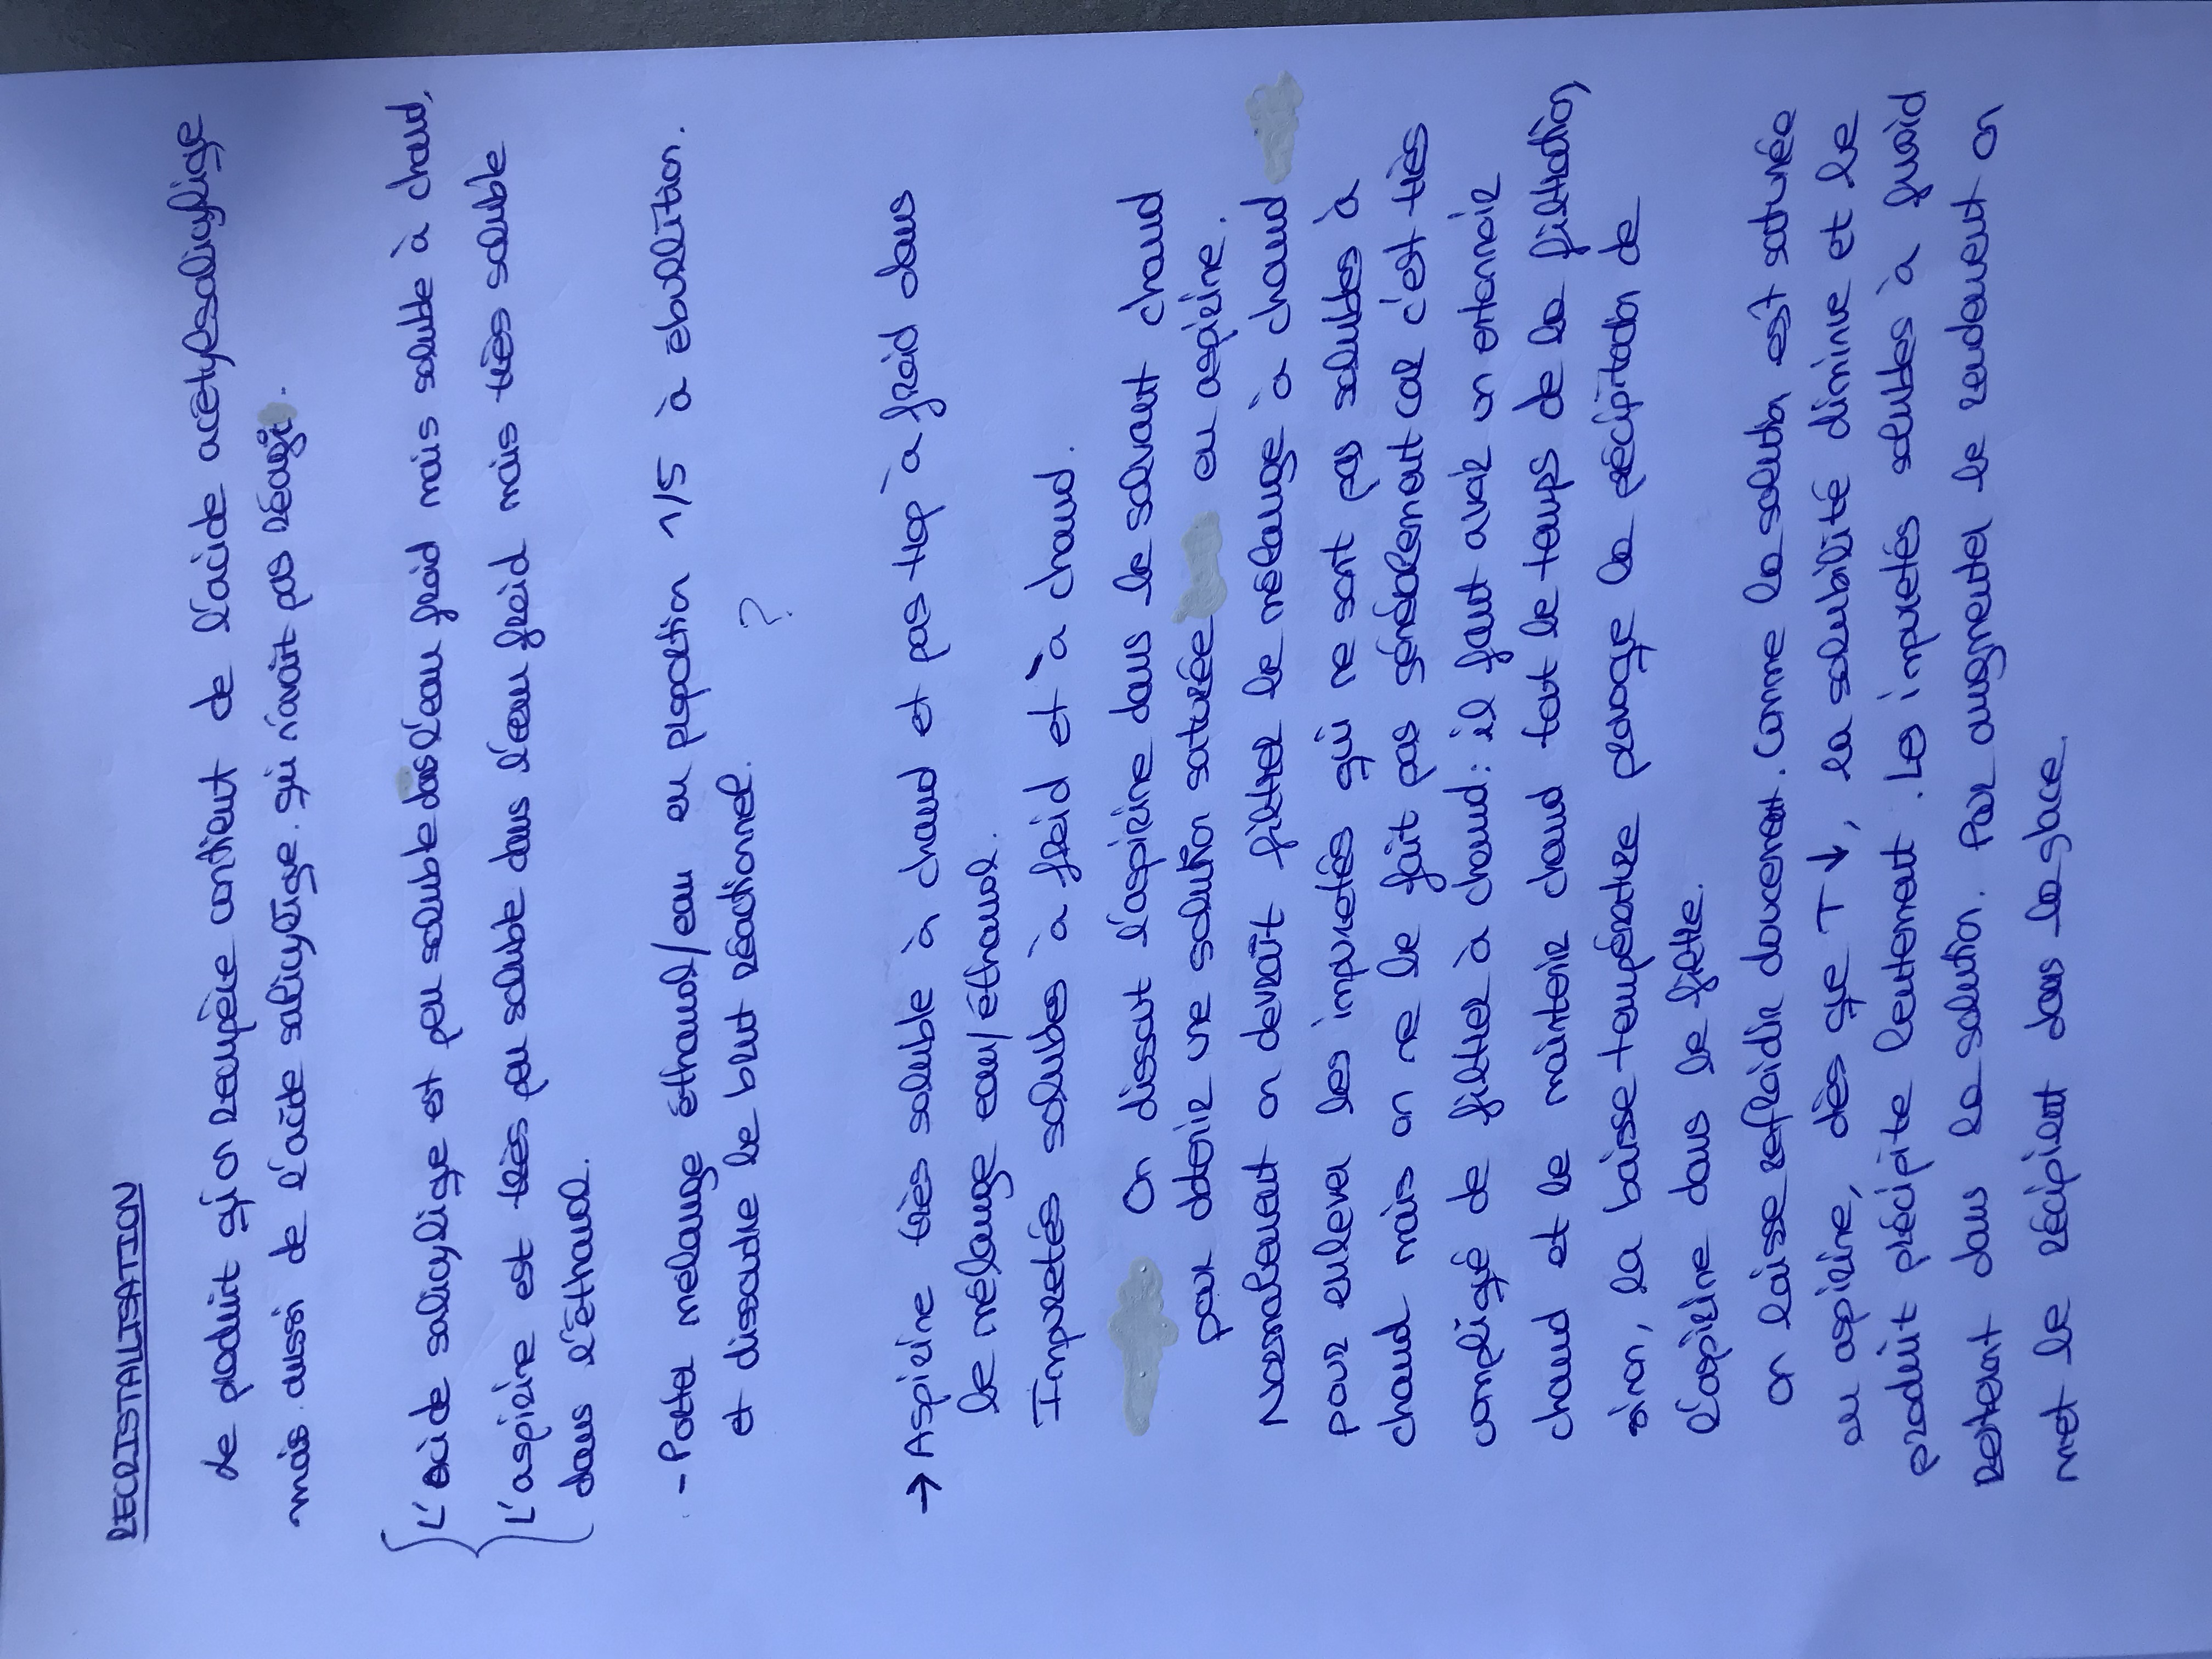 RECRISTALLISATION
Le produit qu'on recupère contient de l'acide acétylsalicylique
mais aussi de l'acide salicylique. qui n'avait pas réagi.
L'acide salicylique est peu soluble dans l'eau froid mais soluble à chaud,
L'aspirine est très peu soluble dans l'eau froid mais très soluble
dans l'éthanol.
- Porter mélange éthanol/eau en proportion 1/5 à ébullition.
et dissoudre le brut réactionnel. ?
→ Aspirine très soluble à chaud et pas trop à froid dans
le mélange eau/éthanol.
Impuretés solubles à froid et à chaud.
On dissout l'aspirine dans le solvant chaud
pour obtenir une solution saturée en aspirine.
Normalement on devrait filtrer le mélange à chaud
pour enlever les impuretés qui ne sont pas solubles à
chaud mais on ne le fait pas généralement car c'est très
compliqué de filtrer à chaud: il faut avoir un entonnoir
chaud et le maintenir chaud tout le temps de la filtration,
sinon, la baisse température provoque la précipitation de
l'aspirine dans le filtre.
On laisse refroidir doucement. Comme la solution est saturée
en aspirine, dès que T ↓, la solubilité diminue et le
produit précipite lentement. Les impuretés solubles à froid
restent dans la solution. Pour augmenter le rendement on
met le récipient dans la glace.